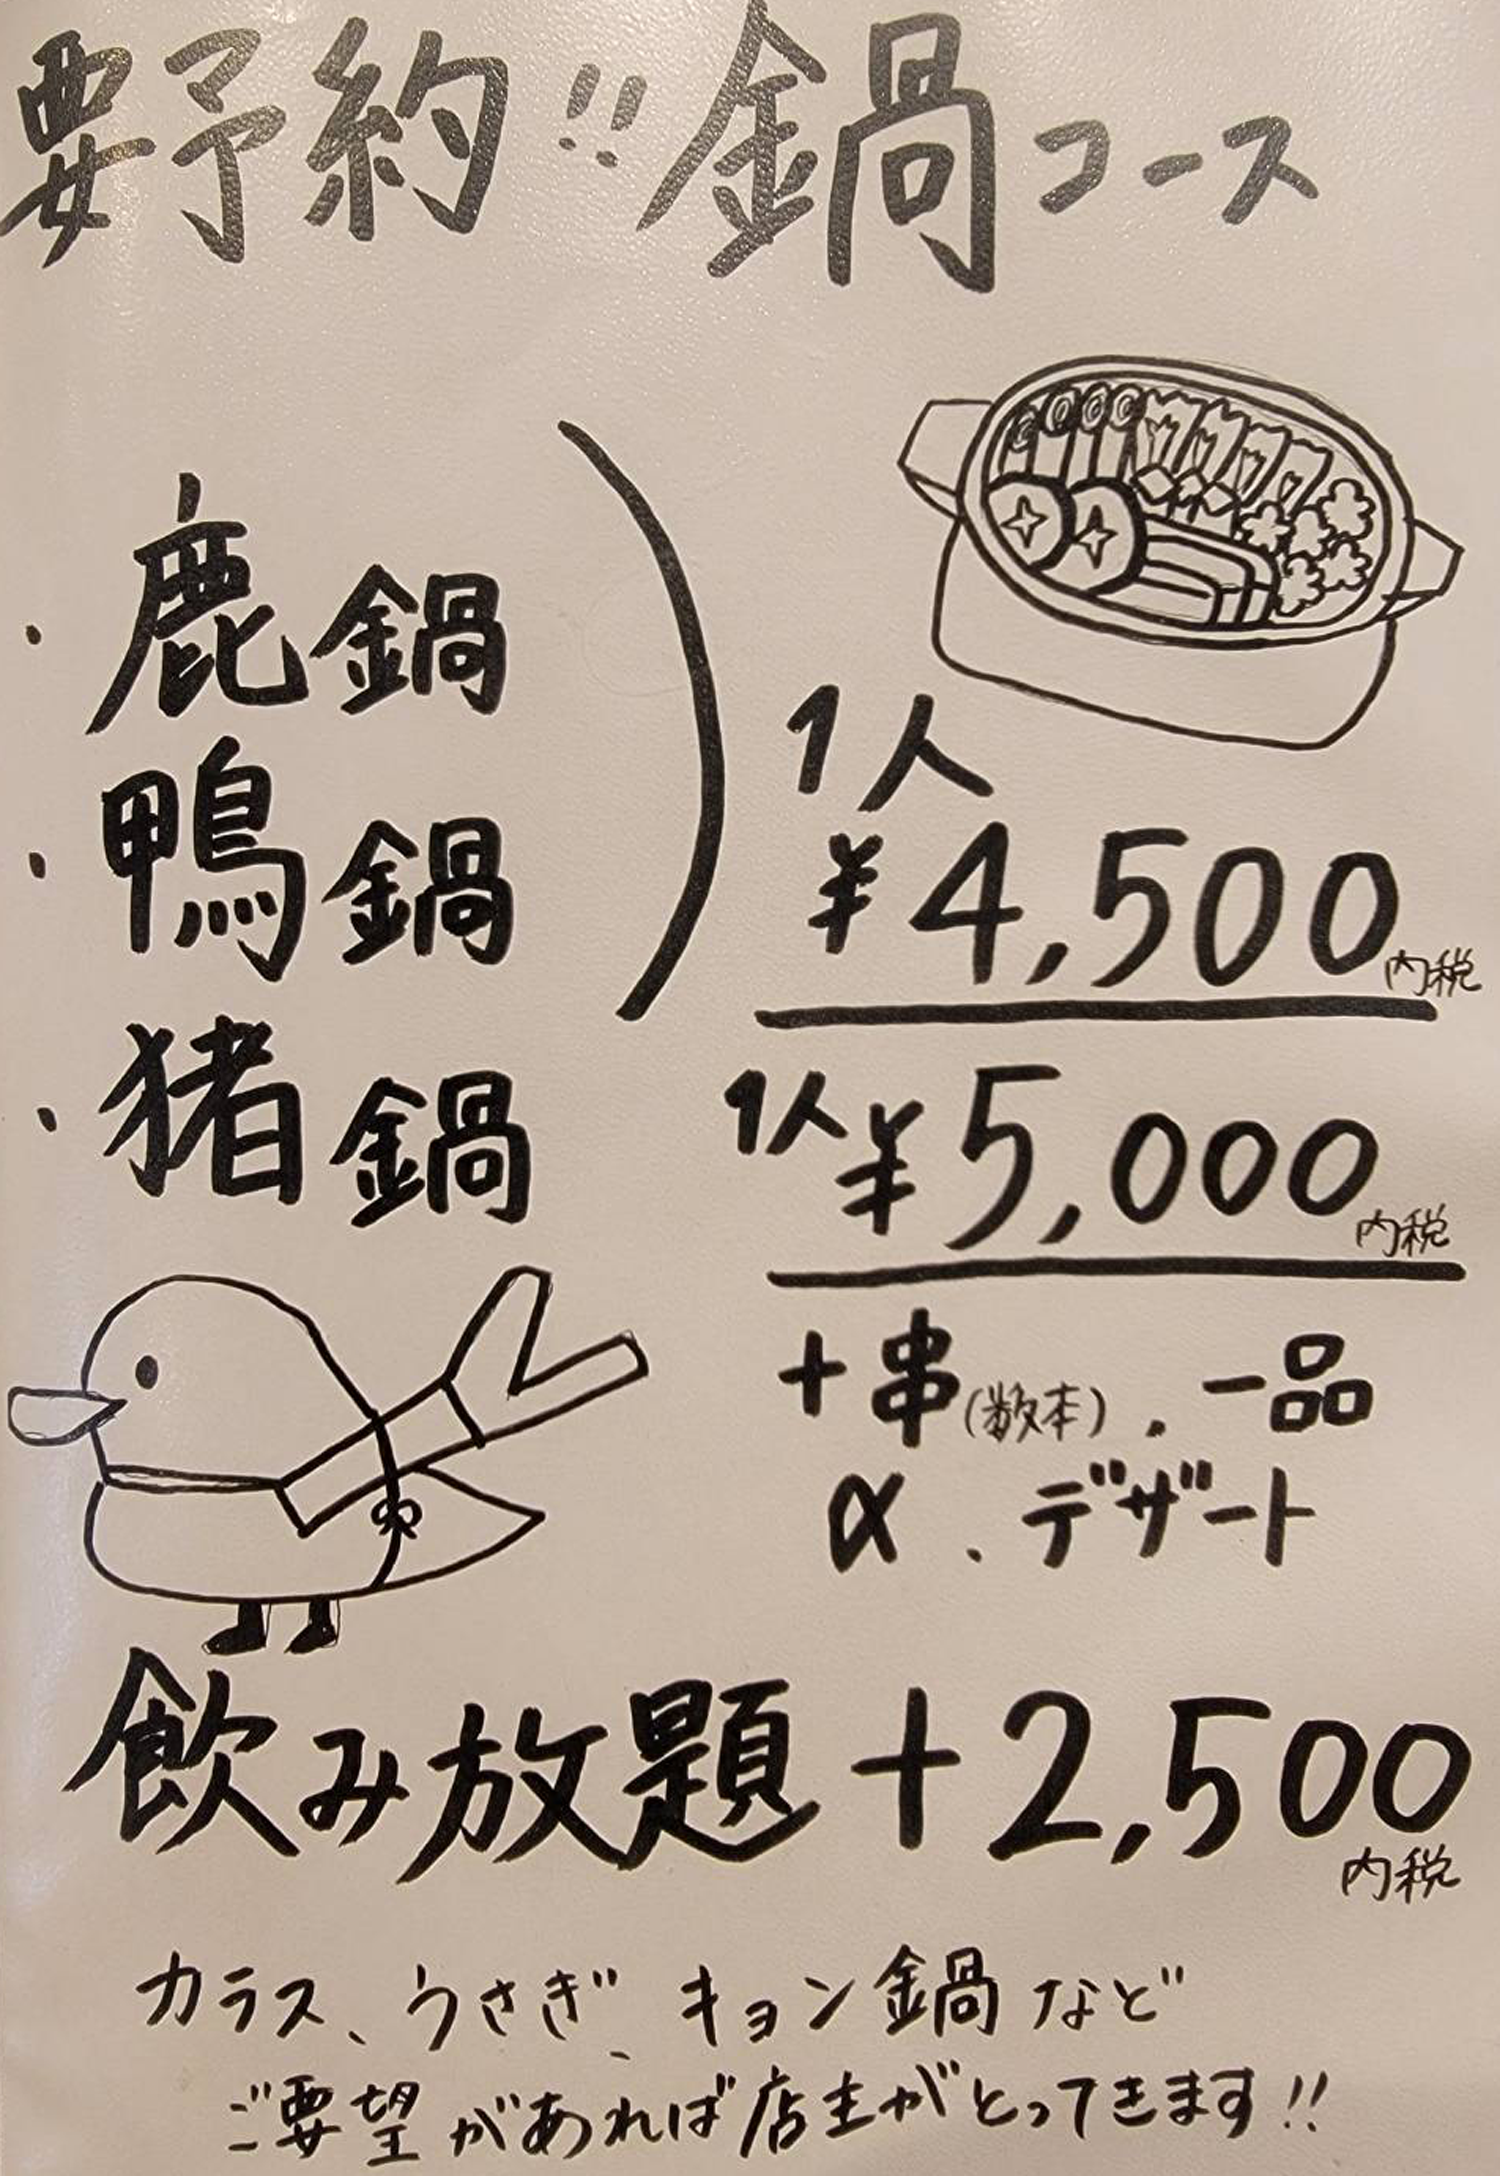 要予約!!鍋コース
・鹿鍋
・鴨鍋
1人
¥4,500内税
・猪鍋 1人¥5,000内税
+串(数本)、一品
α、デザート
飲み放題+2,500
内税
カラス、うさぎ、キョン鍋など
ご要望があれば店主がとってきます!!